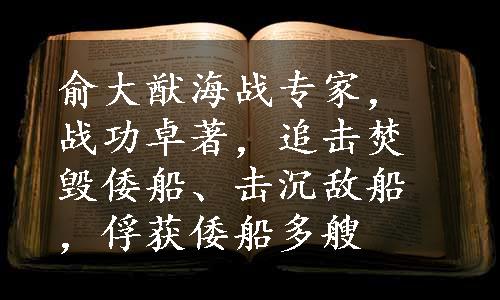 俞大猷海战专家，
战功卓著，追击焚
毁倭船、击沉敌船
，俘获倭船多艘